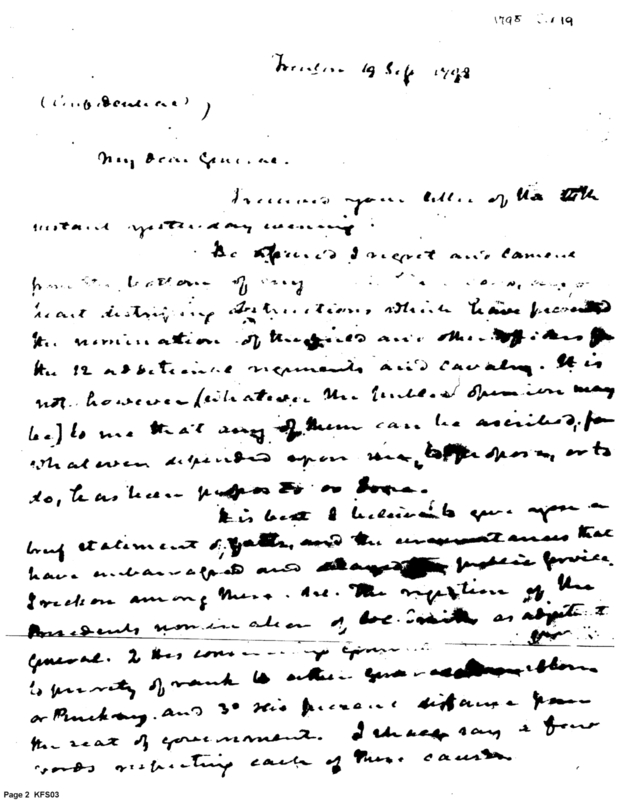 1798 19
Trenton 19 Sep 1798
(Confidential)
My Dear General.
I received your letter of the
instant yesterday evening.
Be assured I regret and lament
from the bottom of my
heart obstructions which have prevented
the nomination of the field and other officers for
the 12 additional regiments and cavalry. It is
not however (whatever the public opinion may
be) to me that any of them can be ascribed, for
whatever depended upon me, to propose, or to
do, has been proposed or done.
It is best I believe to give you a
brief statement of facts, and the circumstances that
have embarrassed and delayed the public service.
I reckon among these. 1st. The rejection of the
Presidents nomination of Col. Smith as adjutant
General. 2 His
to priority of rank to either Knox
or Pinckney. and 3d his present distance from
the seat of government. I shall say a few
words respecting each of these causes.
Page 2 KFS03